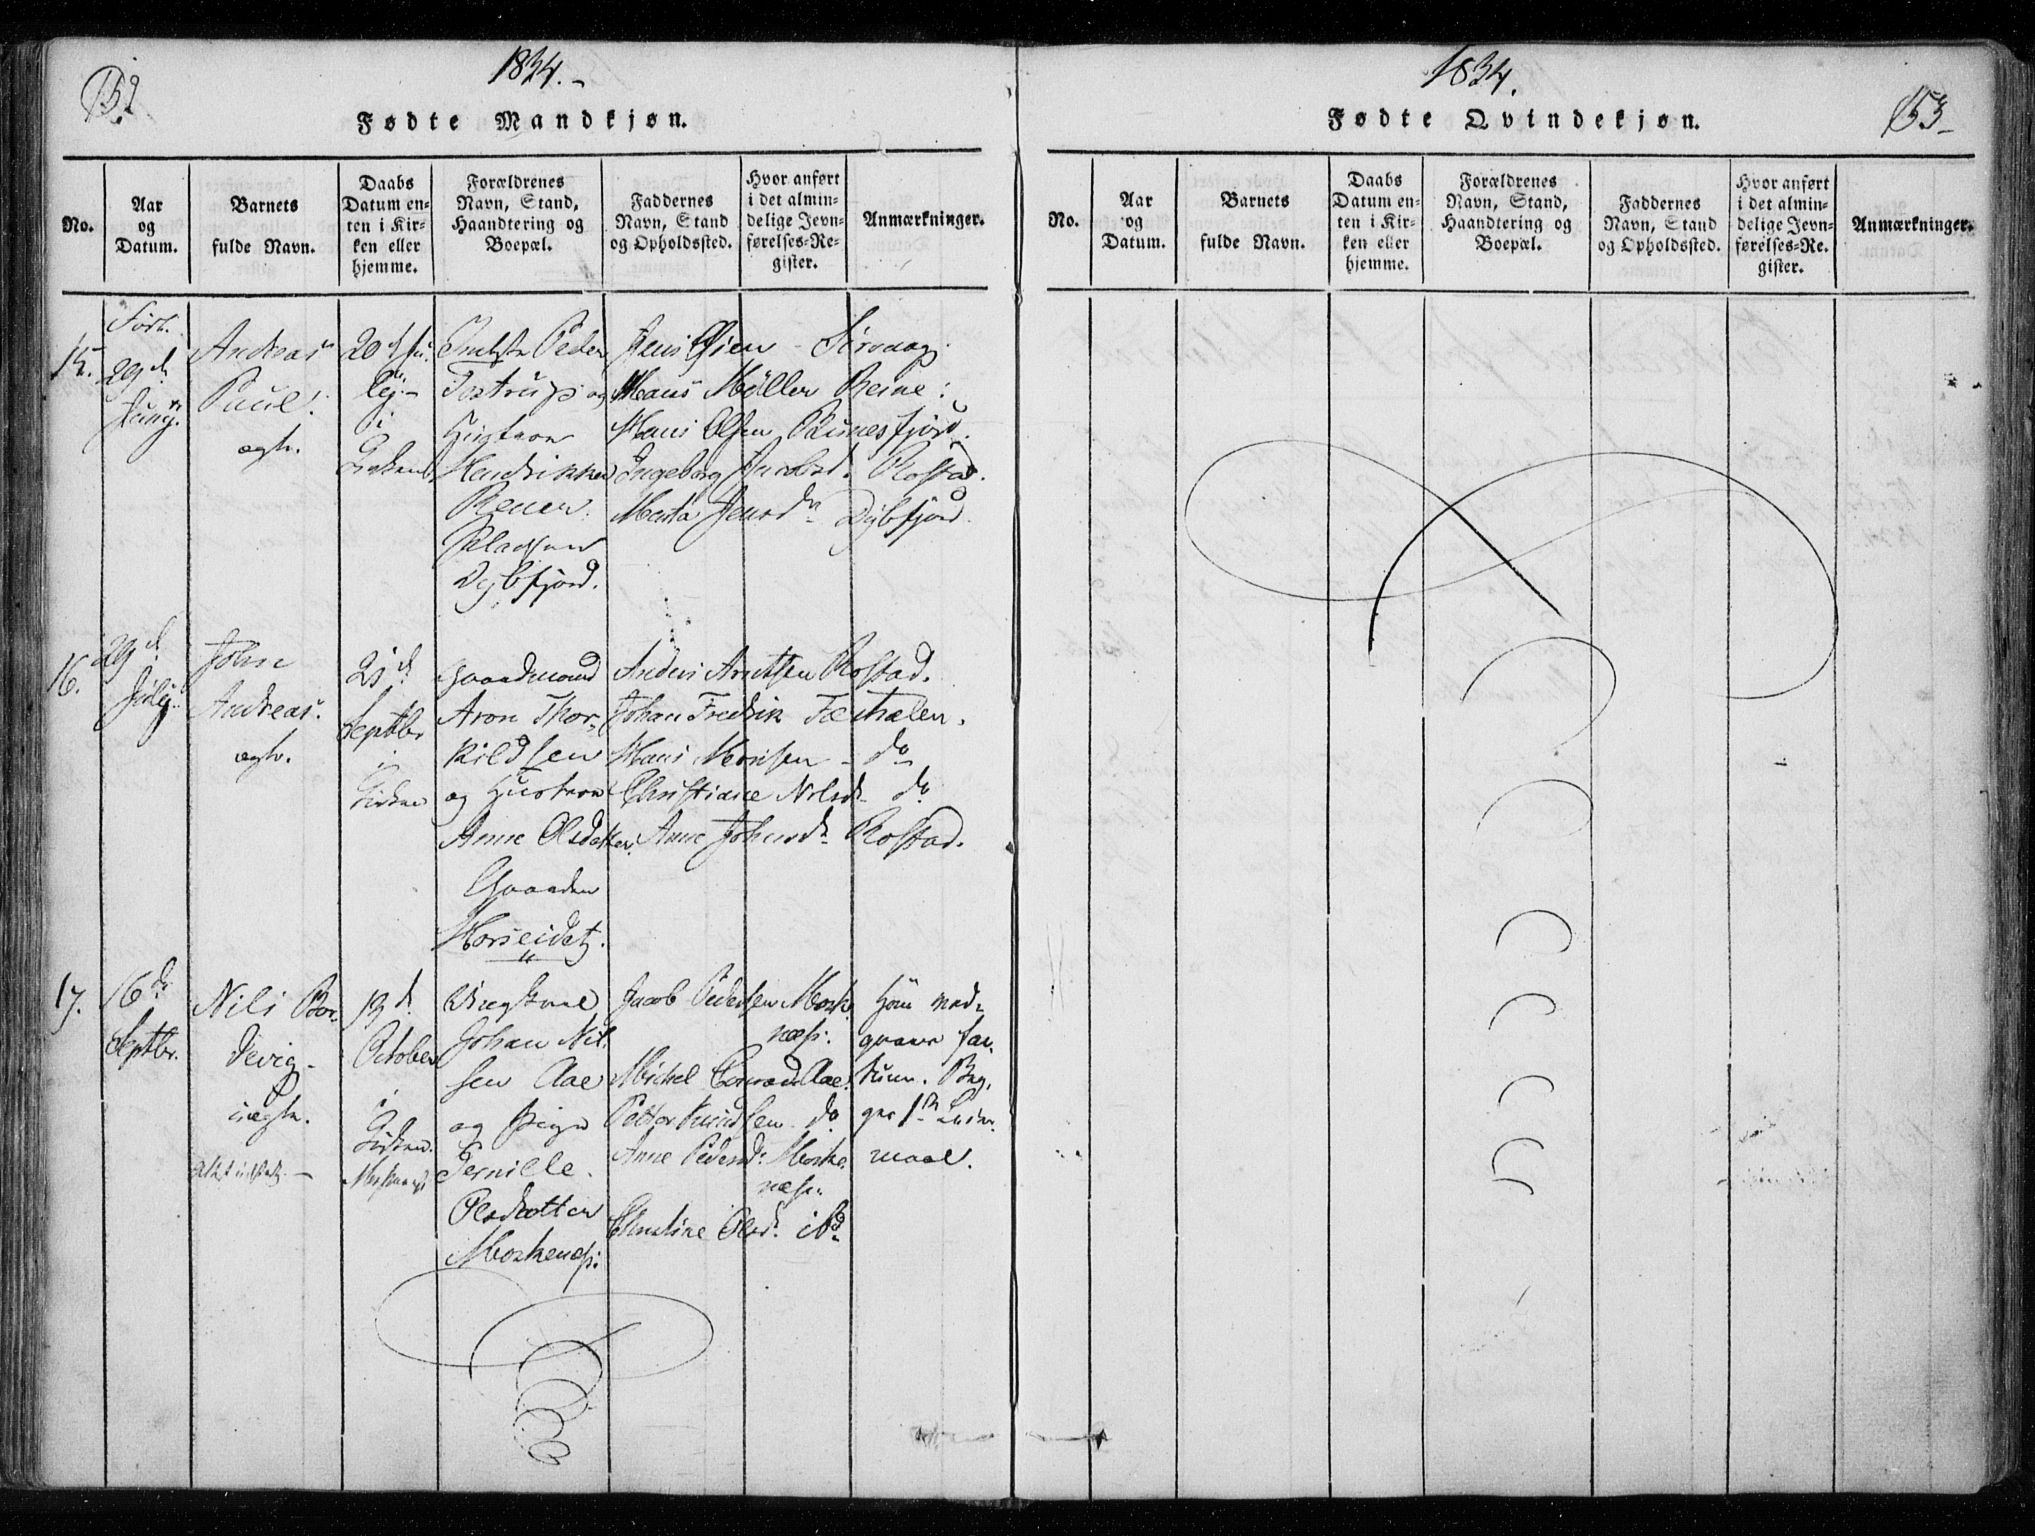 152.
1834.-
Fødte Mandkjøn.
No.
Aar
og
Datum.
Barnets
fulde Navn.
Daabs
Datum en-
ten i Kir-
ken eller
hjemme.
Forældrenes
Navn, Stand,
Haandtering og
Boepæl.
Faddernes
Navn, Stand
og Opholdssted.
Hvor anført
i det almin-
delige Jevn-
førelses-Re-
gister.
Anmærkninger.
15.
Født.
29d.
Juny.
Andreas
Paul.
ægte.
20d Ju-
ly-
i
Kirken
Peder
Tostrup og
Hustroe
Hendrikke
Pladsen
Dybfjord.
Jens Olsen - Sørvaag.
Hans Møller Reine:
Hans Olsen Bunesfjord.
Ingeborg Jacobsd. Rostad.
Marta Jensdr Dybfjord.
16.
29d
July.
John
Andreas.
ægte.
21d
Septbr
i
Kirken
Gaardmand
Aron Thor-
kildsen
og Hustroe
Anne Olsdatter.
Gaarden
Horseidet.
Anders Arntsen Rostad.
Johan Fredrik Tæthalen.
Hans Monsen - do
Christiane Nilsd- do
Anne Johnsdr Rostad.
17.
16d
Septbr.
Nils Bor-
devig-
uægte.
19d
October
i
Kirken.
Moskenæs
Ungkarl
Johan Nil-
sen Aae
og Pige
Pernille
Olsdatter
Moskenæs:
Jacob Pedersen Moske-
næs:
Michel Conrad Aae.
Petter Knudsen - do
Anne Pedersd: Moske-
næs:
Christine Olsd. ibd
Som ved-
gaaer Fa-
tum. Beg-
ges 1ste Leier-
maal.
1834.
153-
Fødte Qvindekjøn.
No.
Aar
og
Datum.
Barnets
fulde Navn.
Daabs
Datum en-
ten i Kir-
ken eller
hjemme.
Forældrenes
Navn, Stand,
Haandtering og
Boepæl.
Faddernes
Navn, Stand
og Opholdssted.
Hvor anført
i det almin-
delige Jevn-
førelses-Re-
gister.
Anmærkninger.